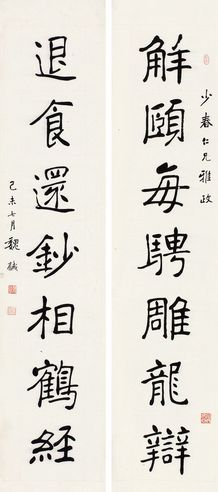 少春仁兄雅政
觧頤每騁雕龍辯
退食還鈔相鶴經
己未七月魏戫